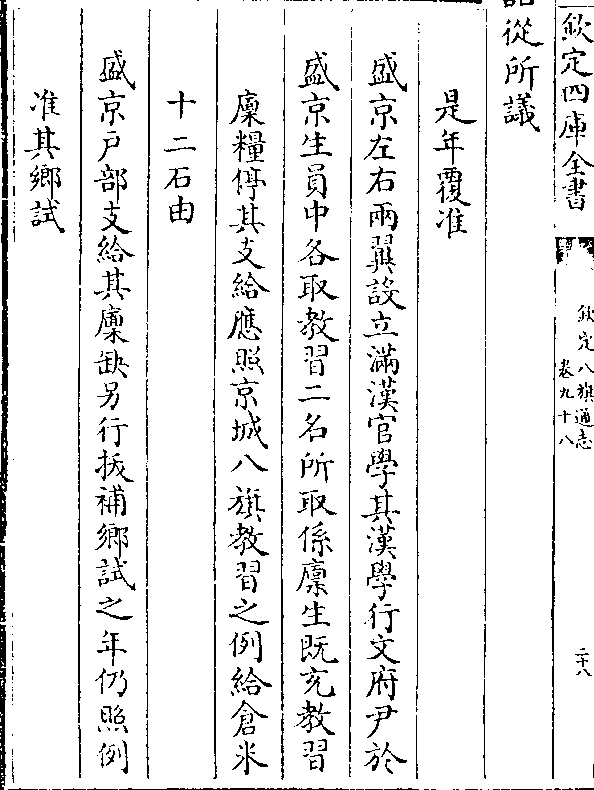 欽定四庫全書
欽定八旗通志
卷九十八
二十八
從所議
是年覆准
盛京左右兩翼設立滿漢官學其漢學行文府尹於
盛京生員中各取教習二名所取係廪生既充教習
廪糧停其支給應照京城八旗教習之例給倉米
十二石由
盛京戸部支給其廪缺另行拔補鄉試之年仍照例
准其鄉試